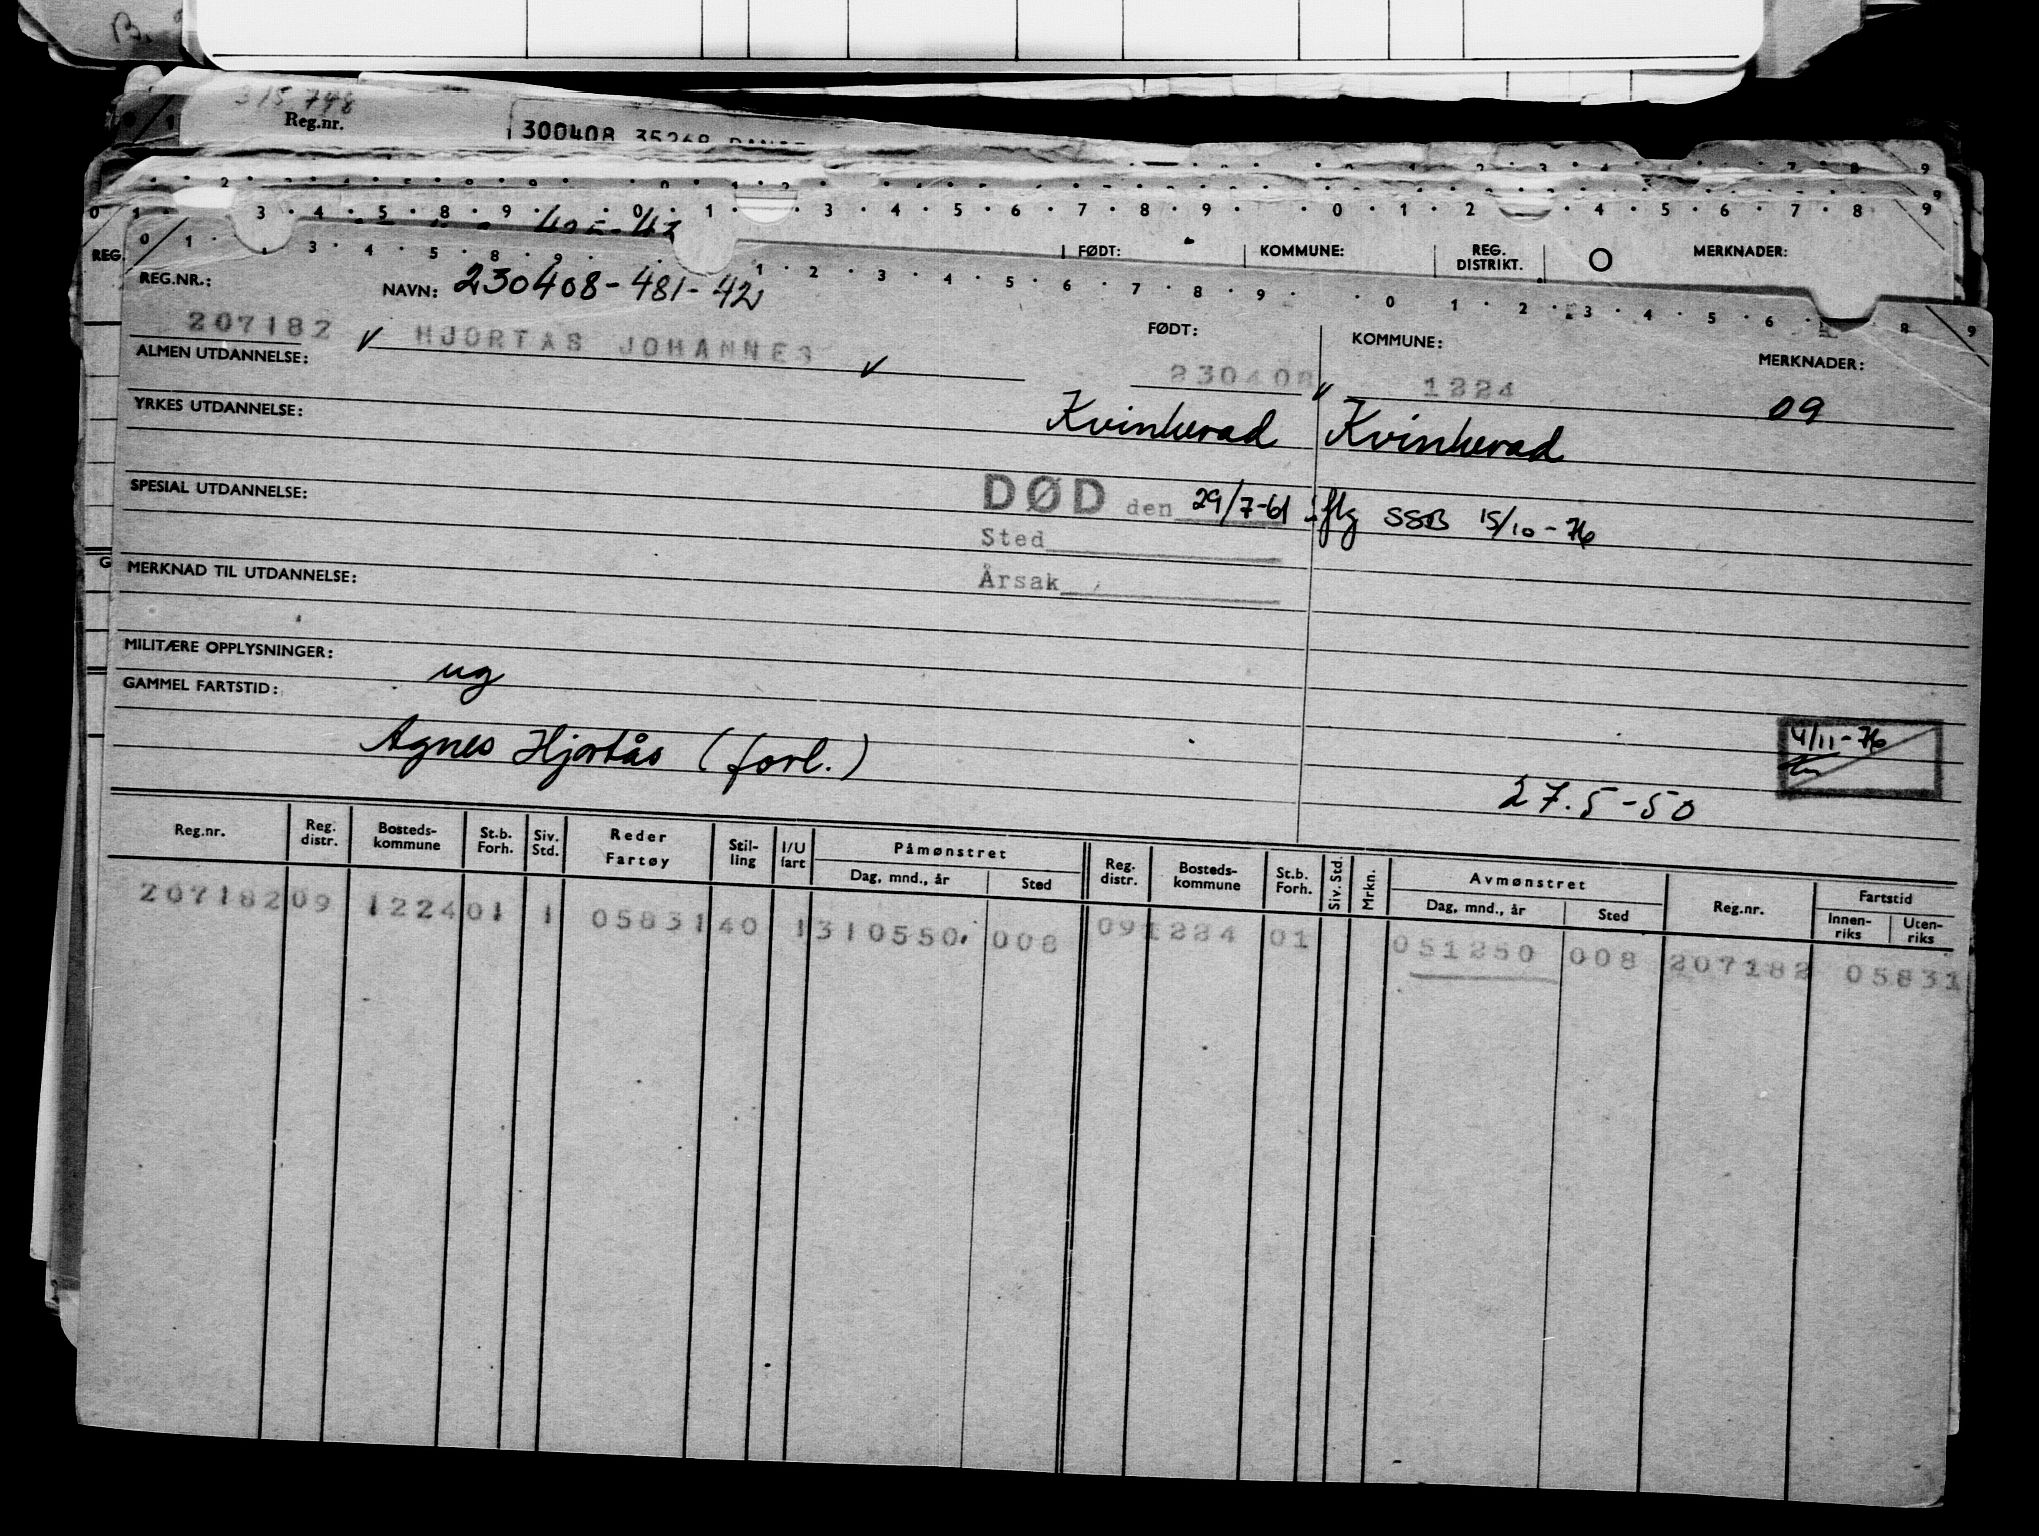 B.
315 748
Reg.nr.
300408 35268
0 1 2 3 4 5 8 9 0 1 3 4 5 6 7 8 9 0 1 2 4 5 6 7 8 9
REG. FØDT: KOMMUNE: REG. DISTRIKT. MERKNADER:
0 1 3 4 5 8 9 1 2 3 4 5 6 7 8 9 0 1 2 3 4 5 6 8 9
REG.NR.: NAVN: 230408-481-42
207182 HJORTAS JOHANNES FØDT: 230408 KOMMUNE: 1224 MERKNADER: 09
ALMEN UTDANNELSE:
YRKES UTDANNELSE: Kvinherad Kvinherad
SPESIAL UTDANNELSE: DØD den 29/7-61 iflg SSB 15/10-76
Sted
MERKNAD TIL UTDANNELSE: Årsak
MILITÆRE OPPLYSNINGER: ug
GAMMEL FARTSTID:
Agnes Hjortås (forl.) 4/11-76
27.5-50
Reg.nr. Reg. distr. Bosteds-kommune St.b. Forh. Siv. Std. Reder Fartøy Stil-ling I/U fart Påmønstret Dag, mnd., år Sted Reg. distr. Bosteds-kommune St.b. Forh. Siv. Std. Mrkn. Avmønstret Dag, mnd., år Sted Reg.nr. Fartstid Innen-riks Uten-riks
207182 09 1224 01 1 05831 40 1 310550 008 09 1224 01 051250 008 207182 05831